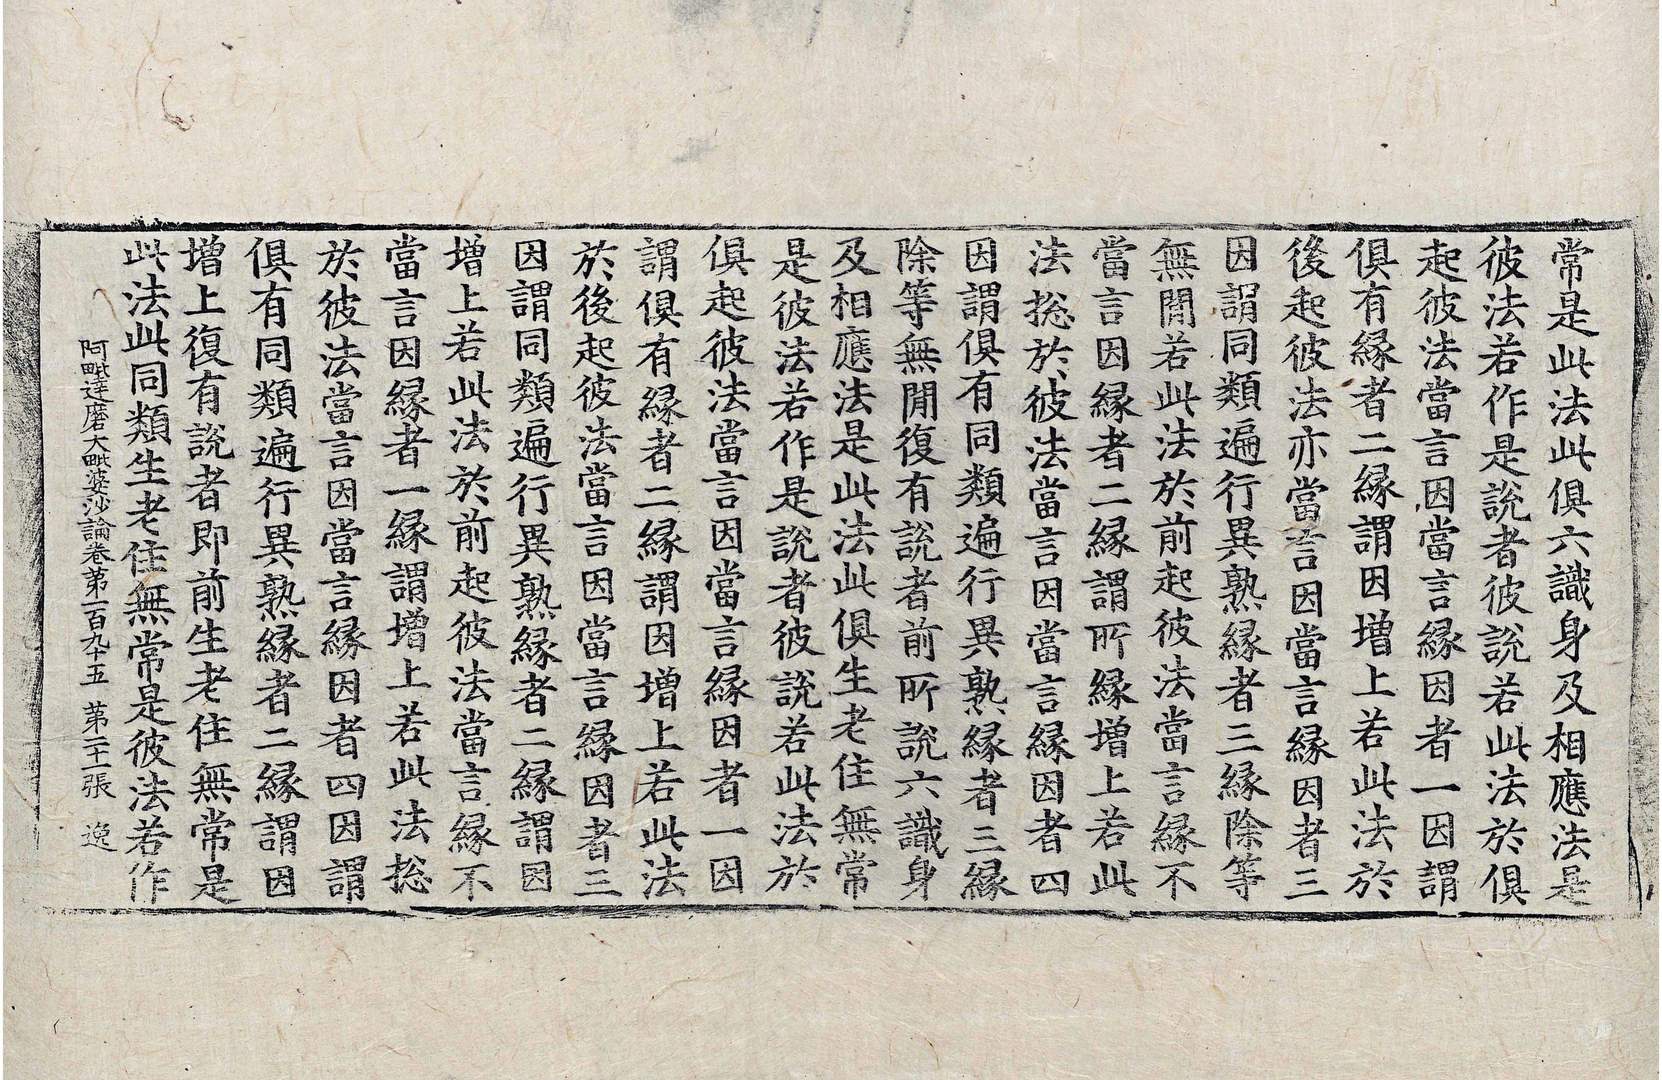 常是此法此俱六識身及相應法是
彼法若作是說者彼說若此法於俱
起彼法當言因當言縁因者一因謂
俱有縁者二縁謂因増上若此法於
後起彼法亦當言因當言縁因者三
因謂同類遍行異熟縁者三縁除等
無閒若此法於前起彼法當言縁不
當言因縁者二縁謂所縁増上若此
法捴於彼法當言因當言縁因者四
因謂俱有同類遍行異熟縁者三縁
除等無閒復有說者前所說六識身
及相應法是此法此俱生老住無常
是彼法若作是說者彼說若此法於
俱起彼法當言因當言縁因者一因
謂俱有縁者二縁謂因増上若此法
於後起彼法當言因當言縁因者三
因謂同類遍行異熟縁者二縁謂因
増上若此法於前起彼法當言縁不
當言因縁者一縁謂増上若此法捴
於彼法當言因當言縁因者四因謂
俱有同類遍行異熟縁者二縁謂因
増上復有說者即前生老住無常是
此法此同類生老住無常是彼法若作
阿毗達磨大毗婆沙論卷第一百九十五 第二十一張 逸